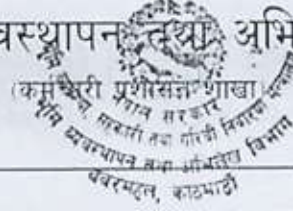 वस्थापन तथा अभि
(कर्मचारी प्रशासन शाखा)
नेपाल सरकार
भूमि व्यवस्था, सहकारी तथा गरिबी निवारण मन्त्रालय
भूमि व्यवस्थापन तथा अभिलेख विभाग
बबरमहल, काठमाडौं